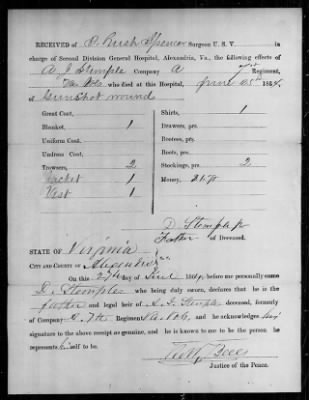 RECEIVED of P. Rush Spencer Surgeon U. S. V. in
charge of Second Division General Hospital, Alexandria, Va., the following effects of
A J Stemple Company A 7th Regiment,
who died at this Hospital, June 25th 1864,
Gunshot wound
Great Coat, Shirts, 1
Blanket, 1 Drawers, prs.
Uniform Coat, Bootees, prs.
Undress Coat, Boots, prs.
Trowsers, 2 Stockings, prs. 2
Jacket 1 Money,
Vest 1
D. Stemple
Father of Deceased.
STATE OF Virginia
CITY AND COUNTY OF Alexandria ss.
On this 27th day of 1864, before me personally came
D. Stemple who being duly sworn, declares that he is the
father and legal heir of A. J. Stemple deceased, formerly
of Company 7th Regiment and he acknowledges his
signature to the above receipt as genuine, and he is known to me to be the person he
represents himself to be.
Justice of the Peace.